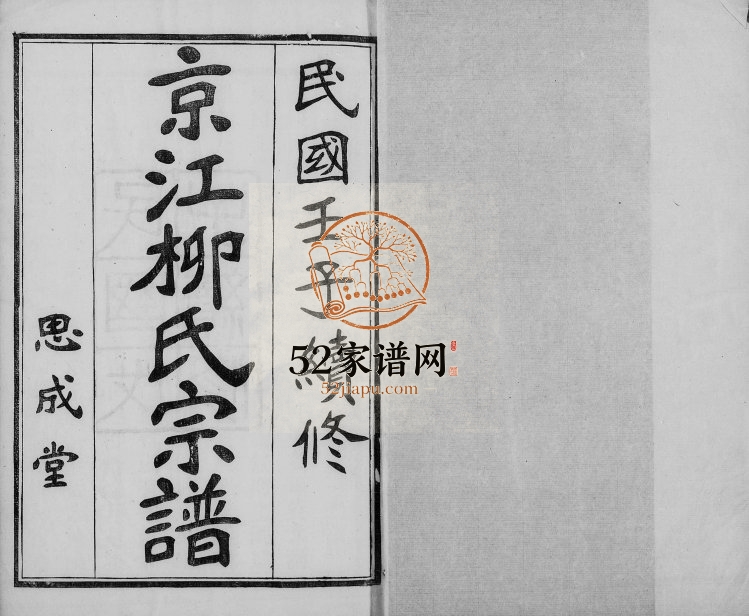 民國壬子續修
京江柳氏宗譜
思成堂
52家谱网
52jiapu.com